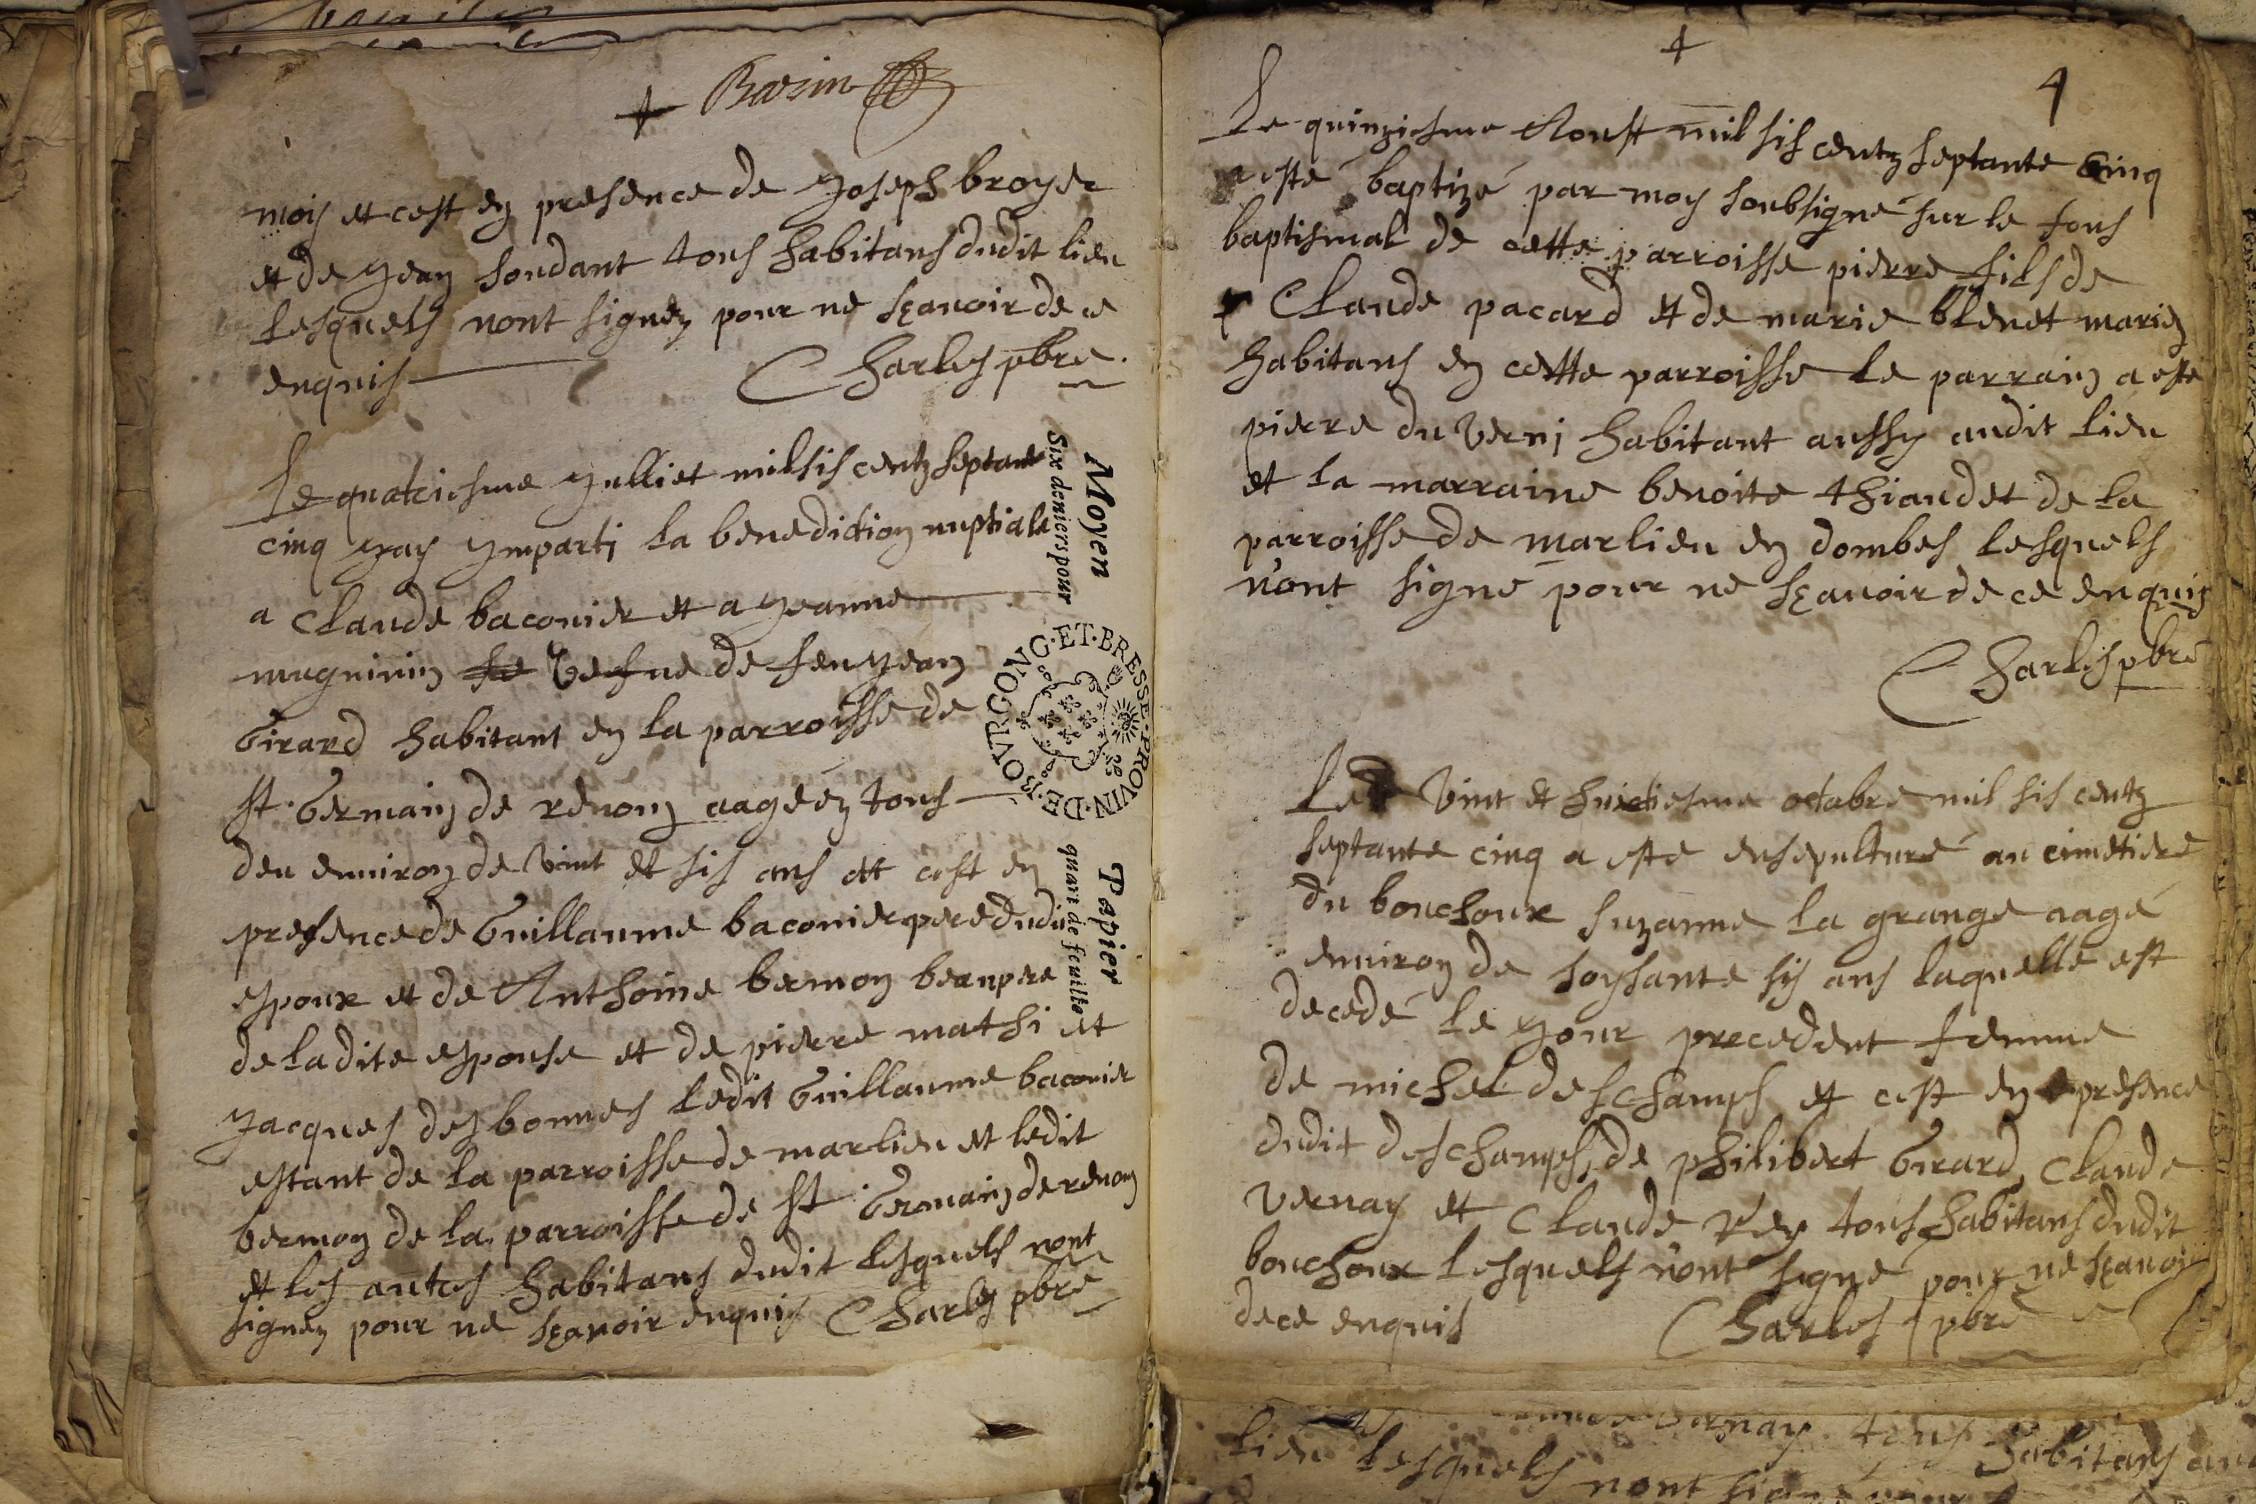 Basin
mois et cest en presence de Joseph broyer
et de yean sondant tous habitans dudit lieu
lesquels nont signez pour ne sçavoir de ce
enquis Charles pbre.
Le quatriesme yulliet mil sis centz septante
cinq yay ymparti la benediction nuptiale
a Claude baconier et a yeanne
mugninin Vefue de feu yean
Girard habitant en la parroisse de
st. Germain de renon aageéz tous
deu enuiron de vint et sis ans ett cest en
presence de Guillaume baconier pere dudit
espoux et de Anthoine bermon beaupere
de la dite espouse et de pierre mathi et
yacques desbonnes ledit Guillaume baconier
estant de la parroisse de marlieu et ledit
bermon de la parroisse de st. Germain de renon
et les autres habitans dudit lesquels nont
signez pour ne sçavoir enquis Charles pbre
Moyen Papier
Six deniers pour quart de feuille
BOVRGONG·ET·BRESSE·PROVIN·DE·
4
Le quinziesme Aoust mil sis centz septante Cinq
a esté baptizé par moy soubsigné sur le fons
baptismal de cette parroisse pierre fils de
Claude pacard et de marie blenet mariez
habitans en cette parroisse le parrain a esté
pierre du Verni habitant aussy audit lieu
et la marraine benoite thiaudet de la
parroisse de marlieu en dombes lesquels
n'ont signé pour ne sçavoir de ce enquis
Charles pbre
Le Vint et huictiesme octabre mil sis centz
septante cinq a esté ensepulturé au cimetiere
du bouchoux suzanne la grange aagé
enuiron de soysante sis ans laquelle est
decedé le your precedent femme
de michel deschamps et cest en presence
dudit deschamps, de philibert Girard Claude
vernay et Claude Rey tous habitans dudit
bouchoux lesquels n'ont signé pour ne sçavoir
de ce enquis Charles pbre
vernay tous habitans
lieu lesquels nont signé pour